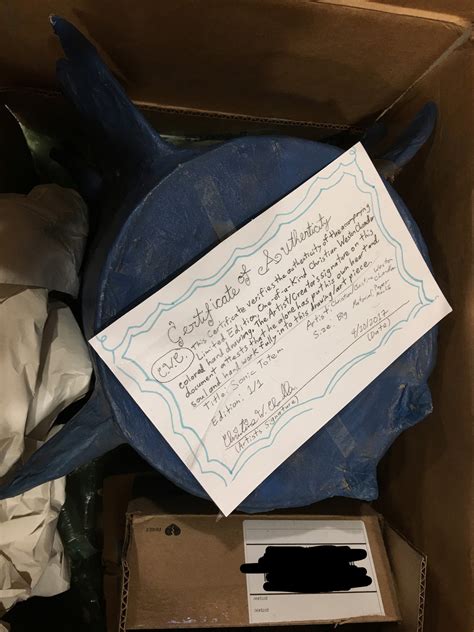 Certificate of Authenticity
C.W.C. This Certificate verifies the authenticity of the accompanying
Limited Edition, One-of-a-Kind Christian Weston Chandler
colored hand drawing. The Artist/Creator's signature on this
document attests that he alone has put his own heart and
soul and hard work fully into this drawing/art piece.
Title: Sonic Totem
Artist: Christian Weston Chandler
Edition: 1/1
Size: By
Material: Paper
9/20/2017
(Artists Signature)
(Date)